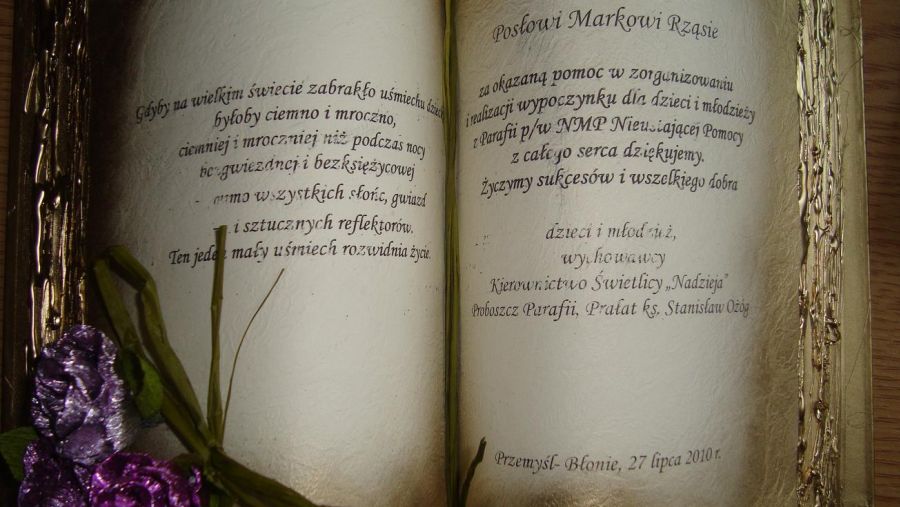 Gdyby na wielkim świecie zabrakło uśmiechu dzieci
byłoby ciemno i mroczno,
ciemniej i mroczniej niż podczas nocy
bezgwiezdnej i bezksiężycowej
wszystkich słońc, gwiazd
i sztucznych reflektorów.
Ten jeden mały uśmiech rozwidnia życie.
Posłowi Markowi Rząsie
za okazaną pomoc w zorganizowaniu
i realizacji wypoczynku dla dzieci i młodzieży
z Parafii p/w NMP Nieustającej Pomocy
z całego serca dziękujemy.
Życzymy sukcesów i wszelkiego dobra
dzieci i młodzież,
wychowawcy
Kierownictwo Świetlicy „Nadzieja”
Proboszcz Parafii, Prałat ks. Stanisław Ożóg
Przemyśl- Błonie, 27 lipca 2010 r.